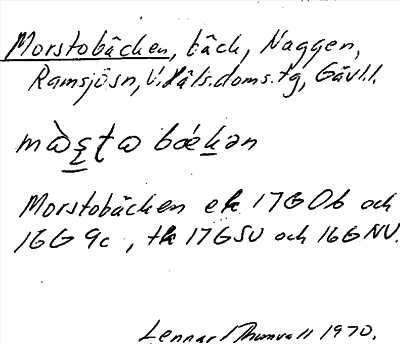 Morstobäcken, bäck, Naggen,
Ramsjösn, V.Häls.doms.tg, Gävl.l.
mɷ̀ʂʈɷ bǽkən
Morstobäcken ek 17G 0b och
16G 9c, tk 17GSV och 16GNV.
Lennart Thunvall 1970.